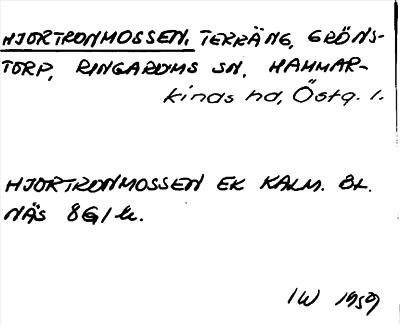 HJORTRONMOSSEN, TERRÄNG, GRÖNS-
TORP, RINGARUMS SN, HAMMAR-
kinds hd, Östg. l.
HJORTRONMOSSEN EK KALM. BL.
NÄS 8G/k.
IW 1959